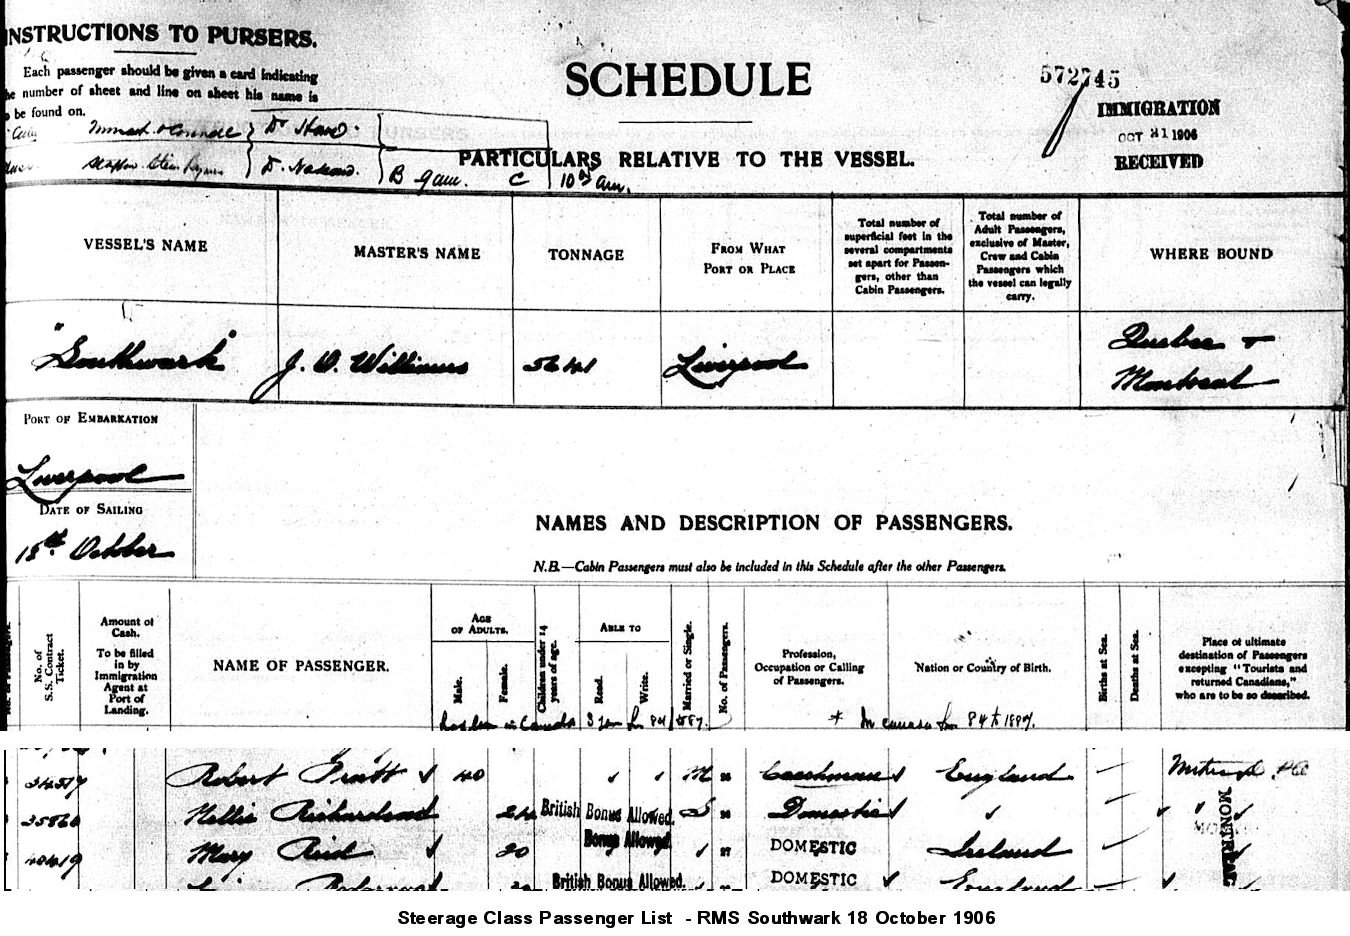 INSTRUCTIONS TO PURSERS.
Each passenger should be given a card indicating
the number of sheet and line on sheet his name is
to be found on.
SCHEDULE
572745
IMMIGRATION
OCT 21 1906
RECEIVED
PARTICULARS RELATIVE TO THE VESSEL.
B 9 am. C 10 am.
VESSEL'S NAME
MASTER'S NAME
TONNAGE
FROM WHAT
PORT OR PLACE
Total number of
superficial feet in the
several compartments
set apart for Passen-
gers, other than
Cabin Passengers.
Total number of
Adult Passengers,
exclusive of Master,
Crew and Cabin
Passengers which
the vessel can legally
carry.
WHERE BOUND
"Southwark"
J. O. Williams
5641
Liverpool
Quebec +
Montreal
PORT OF EMBARKATION
Liverpool
DATE OF SAILING
18th October
NAMES AND DESCRIPTION OF PASSENGERS.
N.B.—Cabin Passengers must also be included in this Schedule after the other Passengers.
No. of
S.S. Contract
Ticket.
Amount of
Cash.
To be filled
in by
Immigration
Agent at
Port of
Landing.
NAME OF PASSENGER.
AGE
OF ADULTS.
Male.
Female.
Children under 14
years of age.
ABLE TO
Read.
Write.
Married or Single.
No. of Passengers.
Profession,
Occupation or Calling
of Passengers.
Nation or Country of Birth.
Births at Sea.
Deaths at Sea.
Place of ultimate
destination of Passengers
excepting "Tourists and
returned Canadians,"
who are to be so described.
in Canada
* In Canada from 84 to 1887.
34579 Robert Pratt 40 M Coachman England
35860 Nellie Richardson 24 British Bonus Allowed. S Domestic "
Bonus Allowed.
40419 Mary Reid 20 DOMESTIC Ireland
MONTREAL
British Bonus Allowed. DOMESTIC England
Steerage Class Passenger List - RMS Southwark 18 October 1906